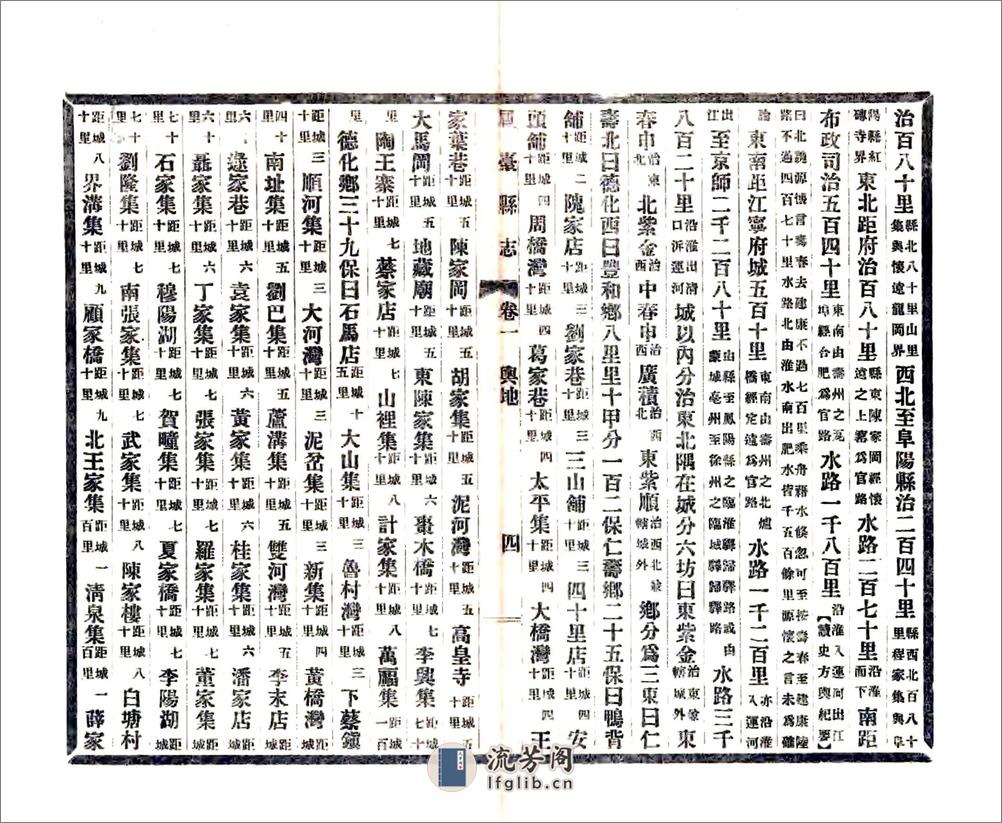 治百八十里縣北八十里山里集與懷遠龍岡界西北至阜陽縣治二百四十里縣西北百八十里程家集與阜
陽縣紅磚寺界東北距府治百八十里縣東陳家岡經懷遠之上窰爲官路水路二百七十里沿淮而下南距
布政司治五百四十里東南由壽州之瓦埠經合肥爲官路水路一千八百里沿淮入運河出江【讀史方輿紀要】
曰魏源懷言壽春去建康不過七百里乘舟藉水倏忽可至按壽春至建康陸路不過四百七十里水路北由淮水南出肥水皆千五百餘里源懷之言未爲確
論東南距江寧府城五百十里東南由壽州之北爐橋經定遠爲官路水路一千二百里亦沿淮入運河
出江至京師二千二百八十里由縣至鳳陽縣之臨淮驛歸驛路或由蒙城亳州至徐州之臨城驛歸驛路水路三千
八百二十里沿淮出清口泝運河城以內分治東北隅在城分六坊曰東紫金治東轄城外東
春申治東北紫金治西中春申治西廣積治西北東紫順治西北兼轄城外鄉分爲三東曰仁
壽北曰德化西曰豐和鄉八里里十甲分一百二保仁壽鄉二十五保曰鴨背
舖距城二十里隗家店距城三十里劉家巷距城三十里三山舖距城三十里四十里店距城四十里安
頭舖距城四十里周橋灣距城四十里葛家巷距城四十里太平集距城四十里大橋灣距城四十里王
鳳臺縣志 卷一 輿地 四
家葉巷距城五十里陳家岡距城五十里胡家集距城五十里泥河灣距城五十里高皇寺距城五十里
大馬岡距城五十里地藏廟距城五十里東陳家集距城六十里棗木橋距城七十里李興集距城七十里
陶王寨距城七十里蔡家店距城七十里山裡集距城八十里計家集距城八十里萬福集距城一百里
德化鄉三十九保曰石馬店距城十五里大山集距城三十里魯村灣距城三十里下蔡鎮
距城三十里順河集距城三十里大河灣距城三十里泥岔集距城三十里新集距城四十里黃橋灣
距城四十里南址集距城五十里劉巴集距城五十里蘆溝集距城五十里雙河灣距城六十里李末店
距城六十里逯家巷距城六十里袁家集距城六十里黃家集距城六十里桂家集距城六十里潘家店
距城六十里聶家集距城六十里丁家集距城七十里張家集距城七十里羅家集距城七十里董家集
距城七十里石家集距城七十里穆陽湖距城七十里賀疃集距城七十里夏家橋距城七十里李陽湖
距城七十里劉隆集距城七十里南張家集距城七十里武家集距城八十里陳家樓距城八十里白塘村
距城八十里界溝集距城九十里顧家橋距城九十里北王家集距城百里清泉集距城一百里薛家
流芳阁
lfglib.cn